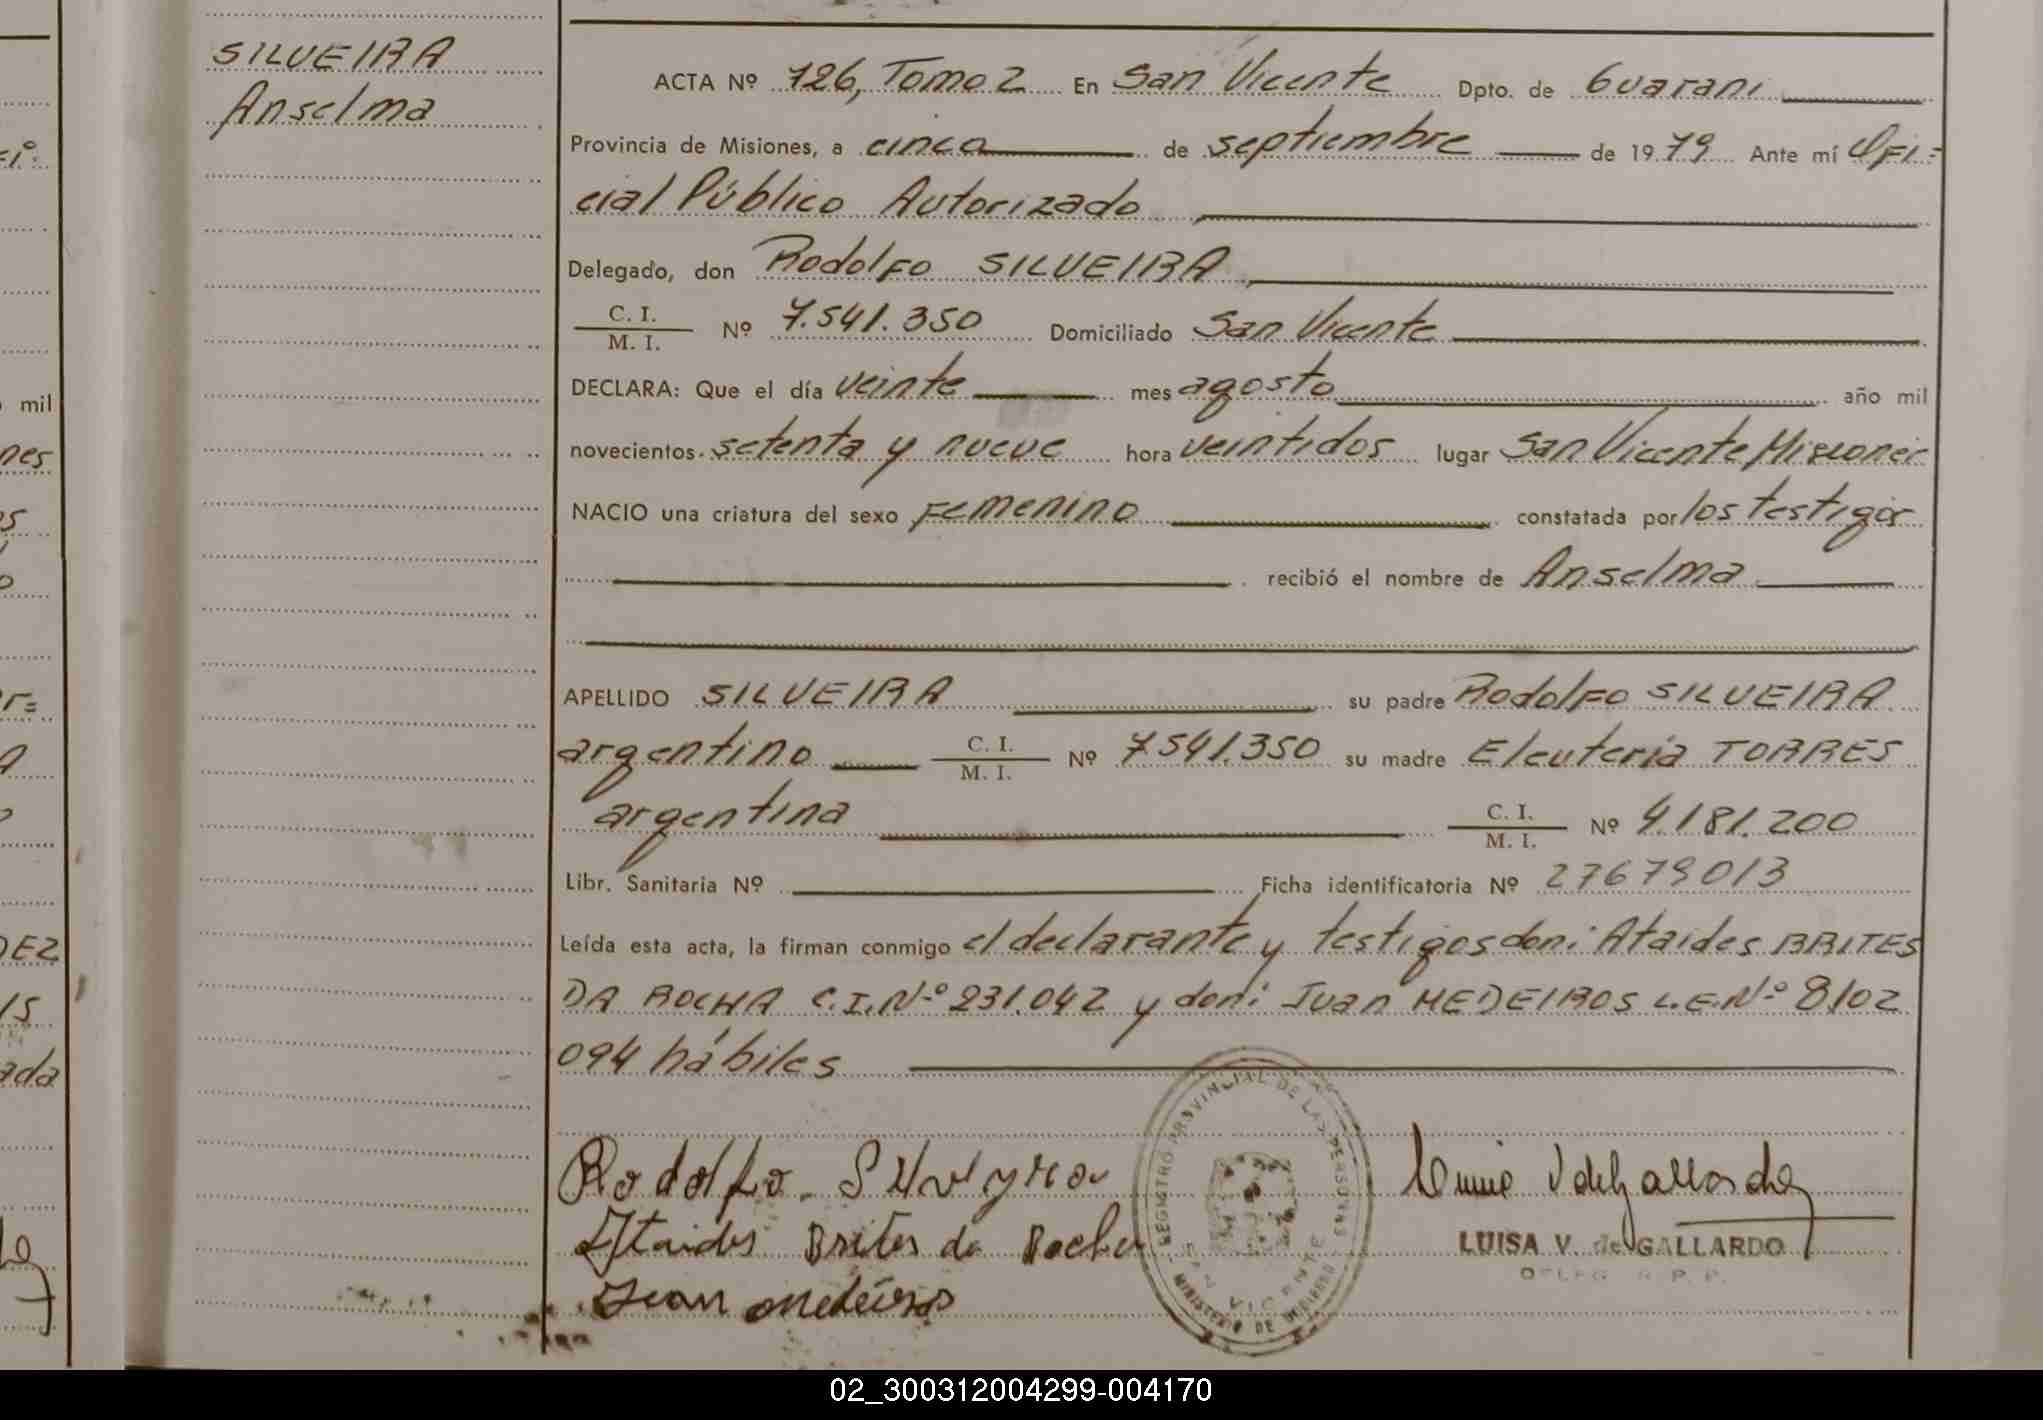 SILVEIRA
Anselma
ACTA Nº 726, Tomo 2 En San Vicente Dpto. de Guarani
Provincia de Misiones, a cinco de septiembre de 1979 Ante mí Ofi=
cial Público Autorizado
Delegado, don Rodolfo SILVEIRA
C. I.
M. I. Nº 7.541.350 Domiciliado San Vicente
DECLARA: Que el día veinte mes agosto año mil
novecientos setenta y nueve hora veintidos lugar San Vicente Misiones
NACIO una criatura del sexo Femenino constatada por los testigos
recibió el nombre de Anselma
APELLIDO SILVEIRA su padre Rodolfo SILVEIRA
argentino C. I.
M. I. Nº 7541.350 su madre Eleuteria TORRES
argentina C. I.
M. I. Nº 4.181.200
Libr. Sanitaria Nº Ficha identificatoria Nº 27679013
Leída esta acta, la firman conmigo el declarante y testigos don: Ataides BRITES
DA ROCHA C.I.Nº 231.042 y don: Juan MEDEIROS L.E.Nº 8102
094 hábiles
Rodolfo Silveyra
Ataides Brites da Rocha
Juan medeiros
REGISTRO PROVINCIAL DE LAS PERSONAS
SAN VICENTE
MINISTERIO DE GOBIERNO
LUISA V. de GALLARDO
DELEG. R. P. P.
02_300312004299-004170